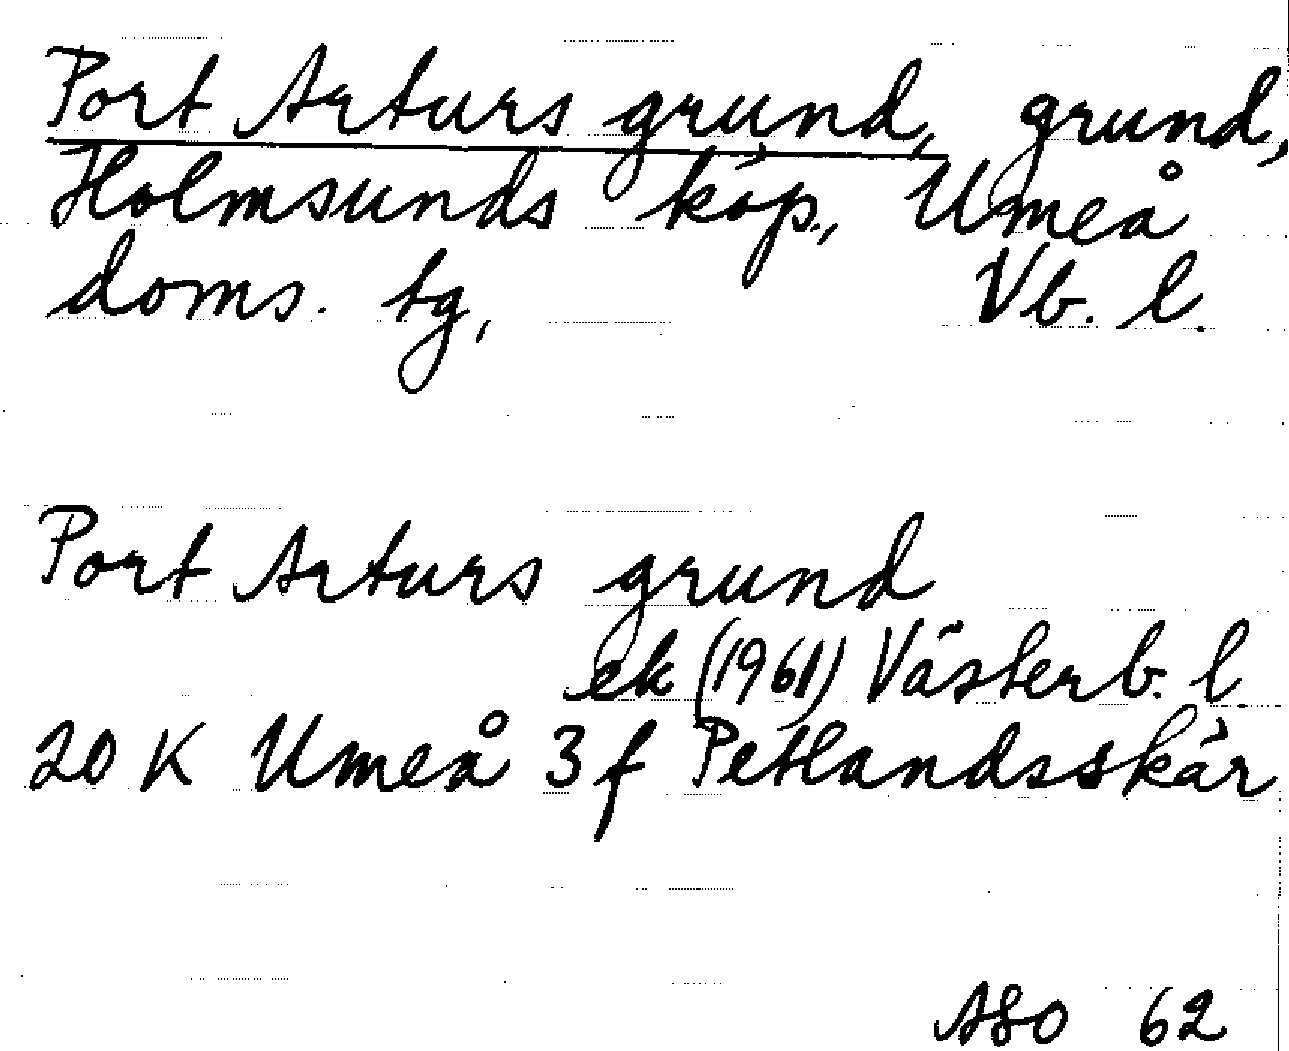 Port Arturs grund, grund,
Holmsunds köp., Umeå
doms. tg, Vb. l.
Port Arturs grund
ek (1961) Västerb. l.
20 K Umeå 3 f Petlandsskär
ASO 62